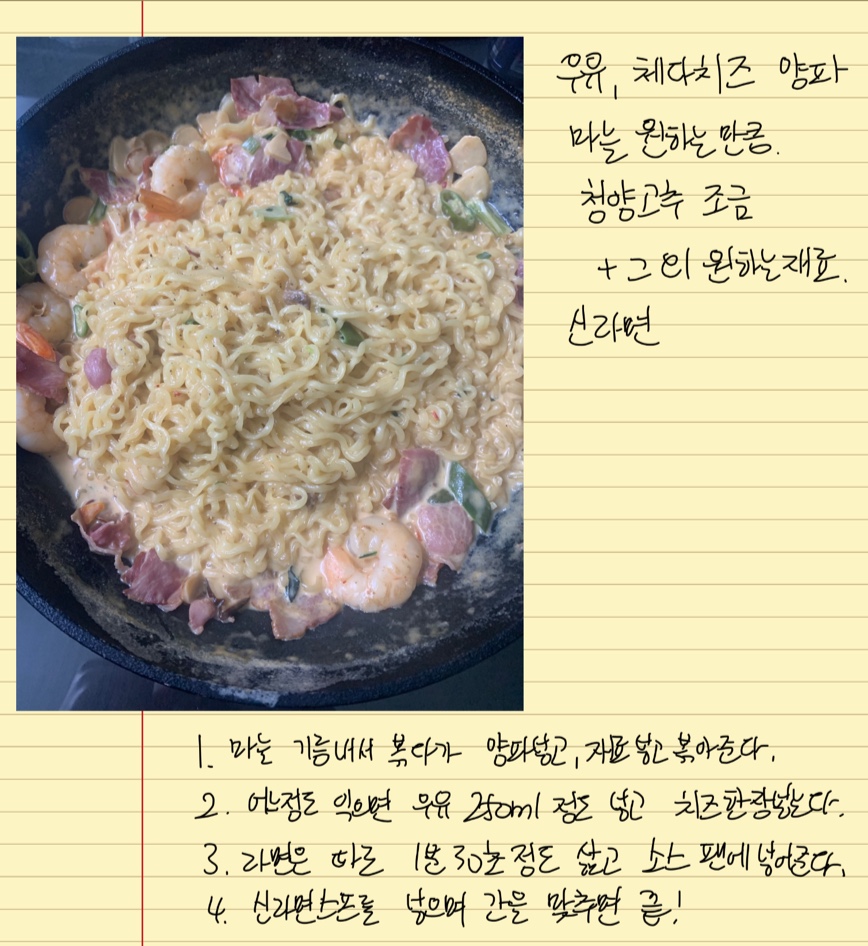 우유, 체다치즈 양파
마늘 원하는만큼.
청양고추 조금
+ 그 외 원하는재료.
신라면
1. 마늘 기름내서 볶다가 양파넣고, 재료넣고볶아준다.
2. 어느정도 익으면 우유 250ml 정도 넣고 치즈한장넣는다.
3. 라면은 따로 1분30초정도 삶고 소스 팬에넣어준다.
4. 신라면스프를 넣으며 간을 맞추면 끝!